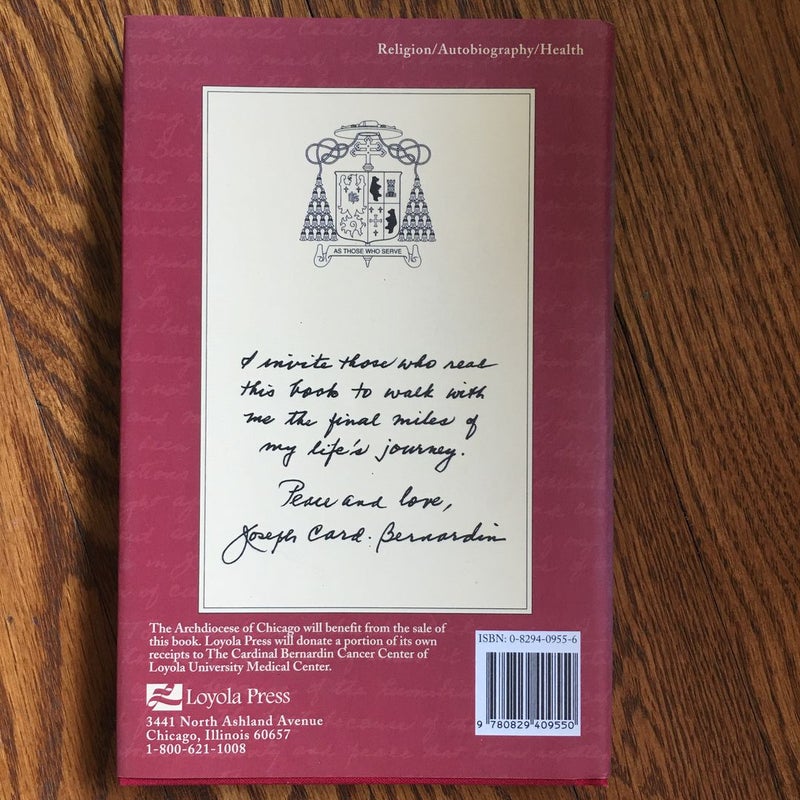 Religion/Autobiography/Health
AS THOSE WHO SERVE
I invite those who read
this book to walk with
me the final miles of
my life's journey.
Peace and love,
Joseph Card. Bernardin
The Archdiocese of Chicago will benefit from the sale of
this book. Loyola Press will donate a portion of its own
receipts to The Cardinal Bernardin Cancer Center of
Loyola University Medical Center.
Loyola Press
3441 North Ashland Avenue
Chicago, Illinois 60657
1-800-621-1008
ISBN: 0-8294-0955-6
9 780829 409550